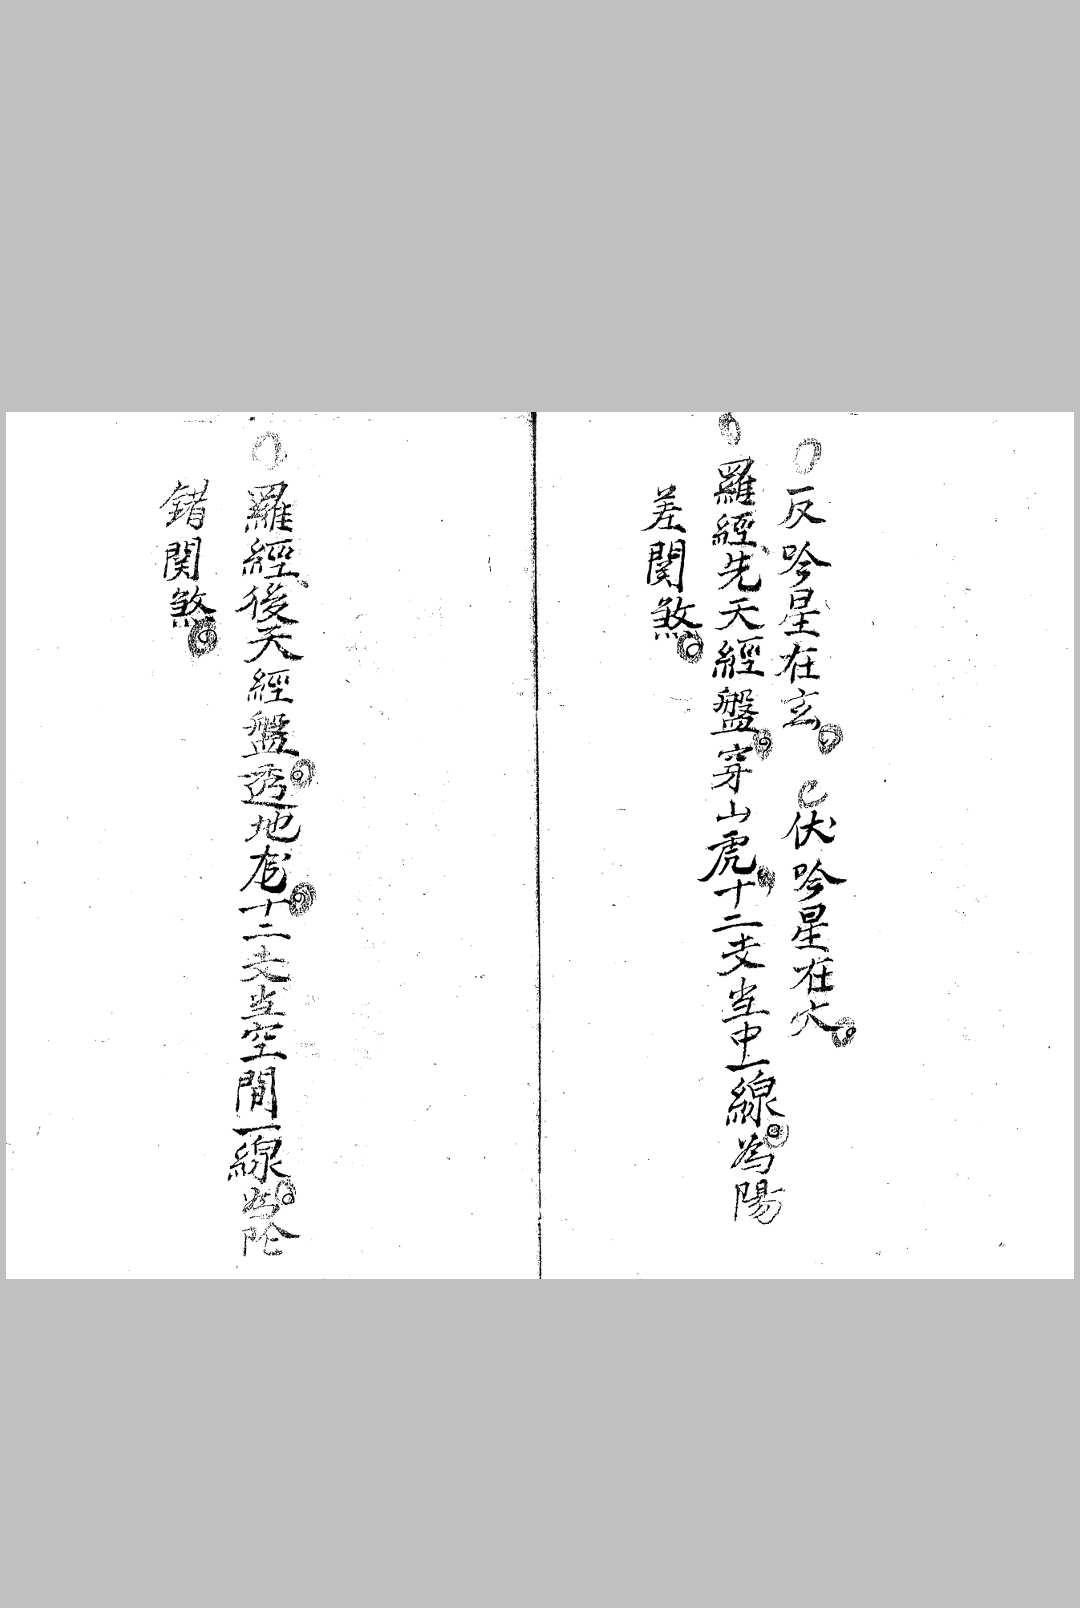 反吟星在玄 伏吟星在六
羅經先天經盤穿山虎十二支当中一線為陽
差関煞
羅經後天經盤透地龙十二支当空間一線為阴
錯関煞